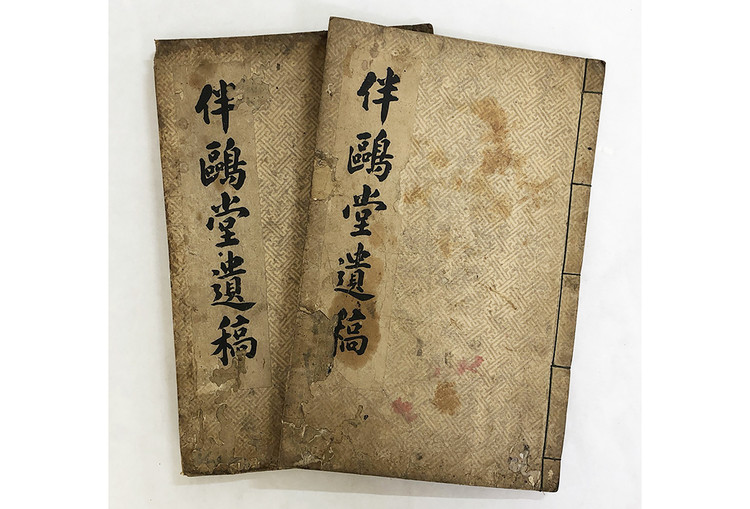 伴鷗堂遺稿
伴鷗堂遺稿